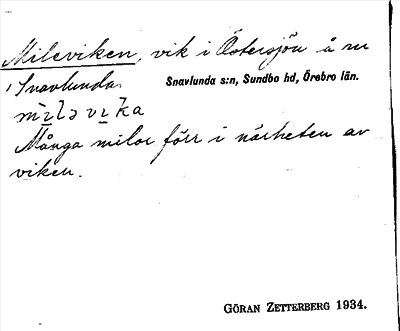 Mileviken, vik i Östersjön å m
i Snavlunda. Snavlunda s:n, Sundbo hd, Örebro län.
mìlavika
Många milor förr i närheten av
viken.
GÖRAN ZETTERBERG 1934.